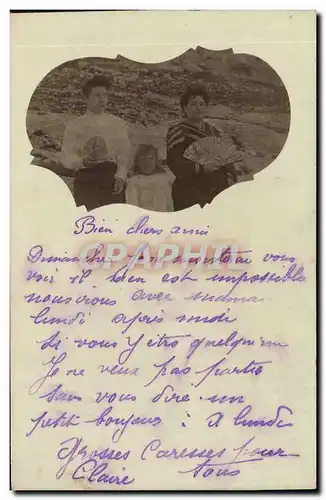 Bien chers amis
Dimanche vous
voir il bien est impossible
nous irons avec
lundi après midi
si vous y êtes quelqu'un
Je ne veux pas partir
sans vous dire un
petit bonjour : A lundi
Grosses Caresses pour
Claire tous